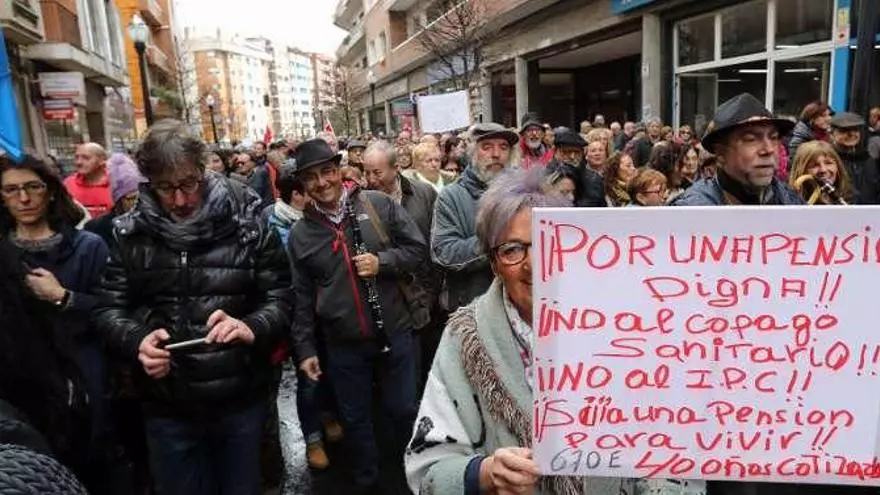 ¡¡POR UNA PENSI
DignA!!
¡¡NO al copago
SanitaRIO!!
¡¡NO al I.P.C!!
¡¡Sí a una Pension
para vivir!!
670E 40 años cotiza